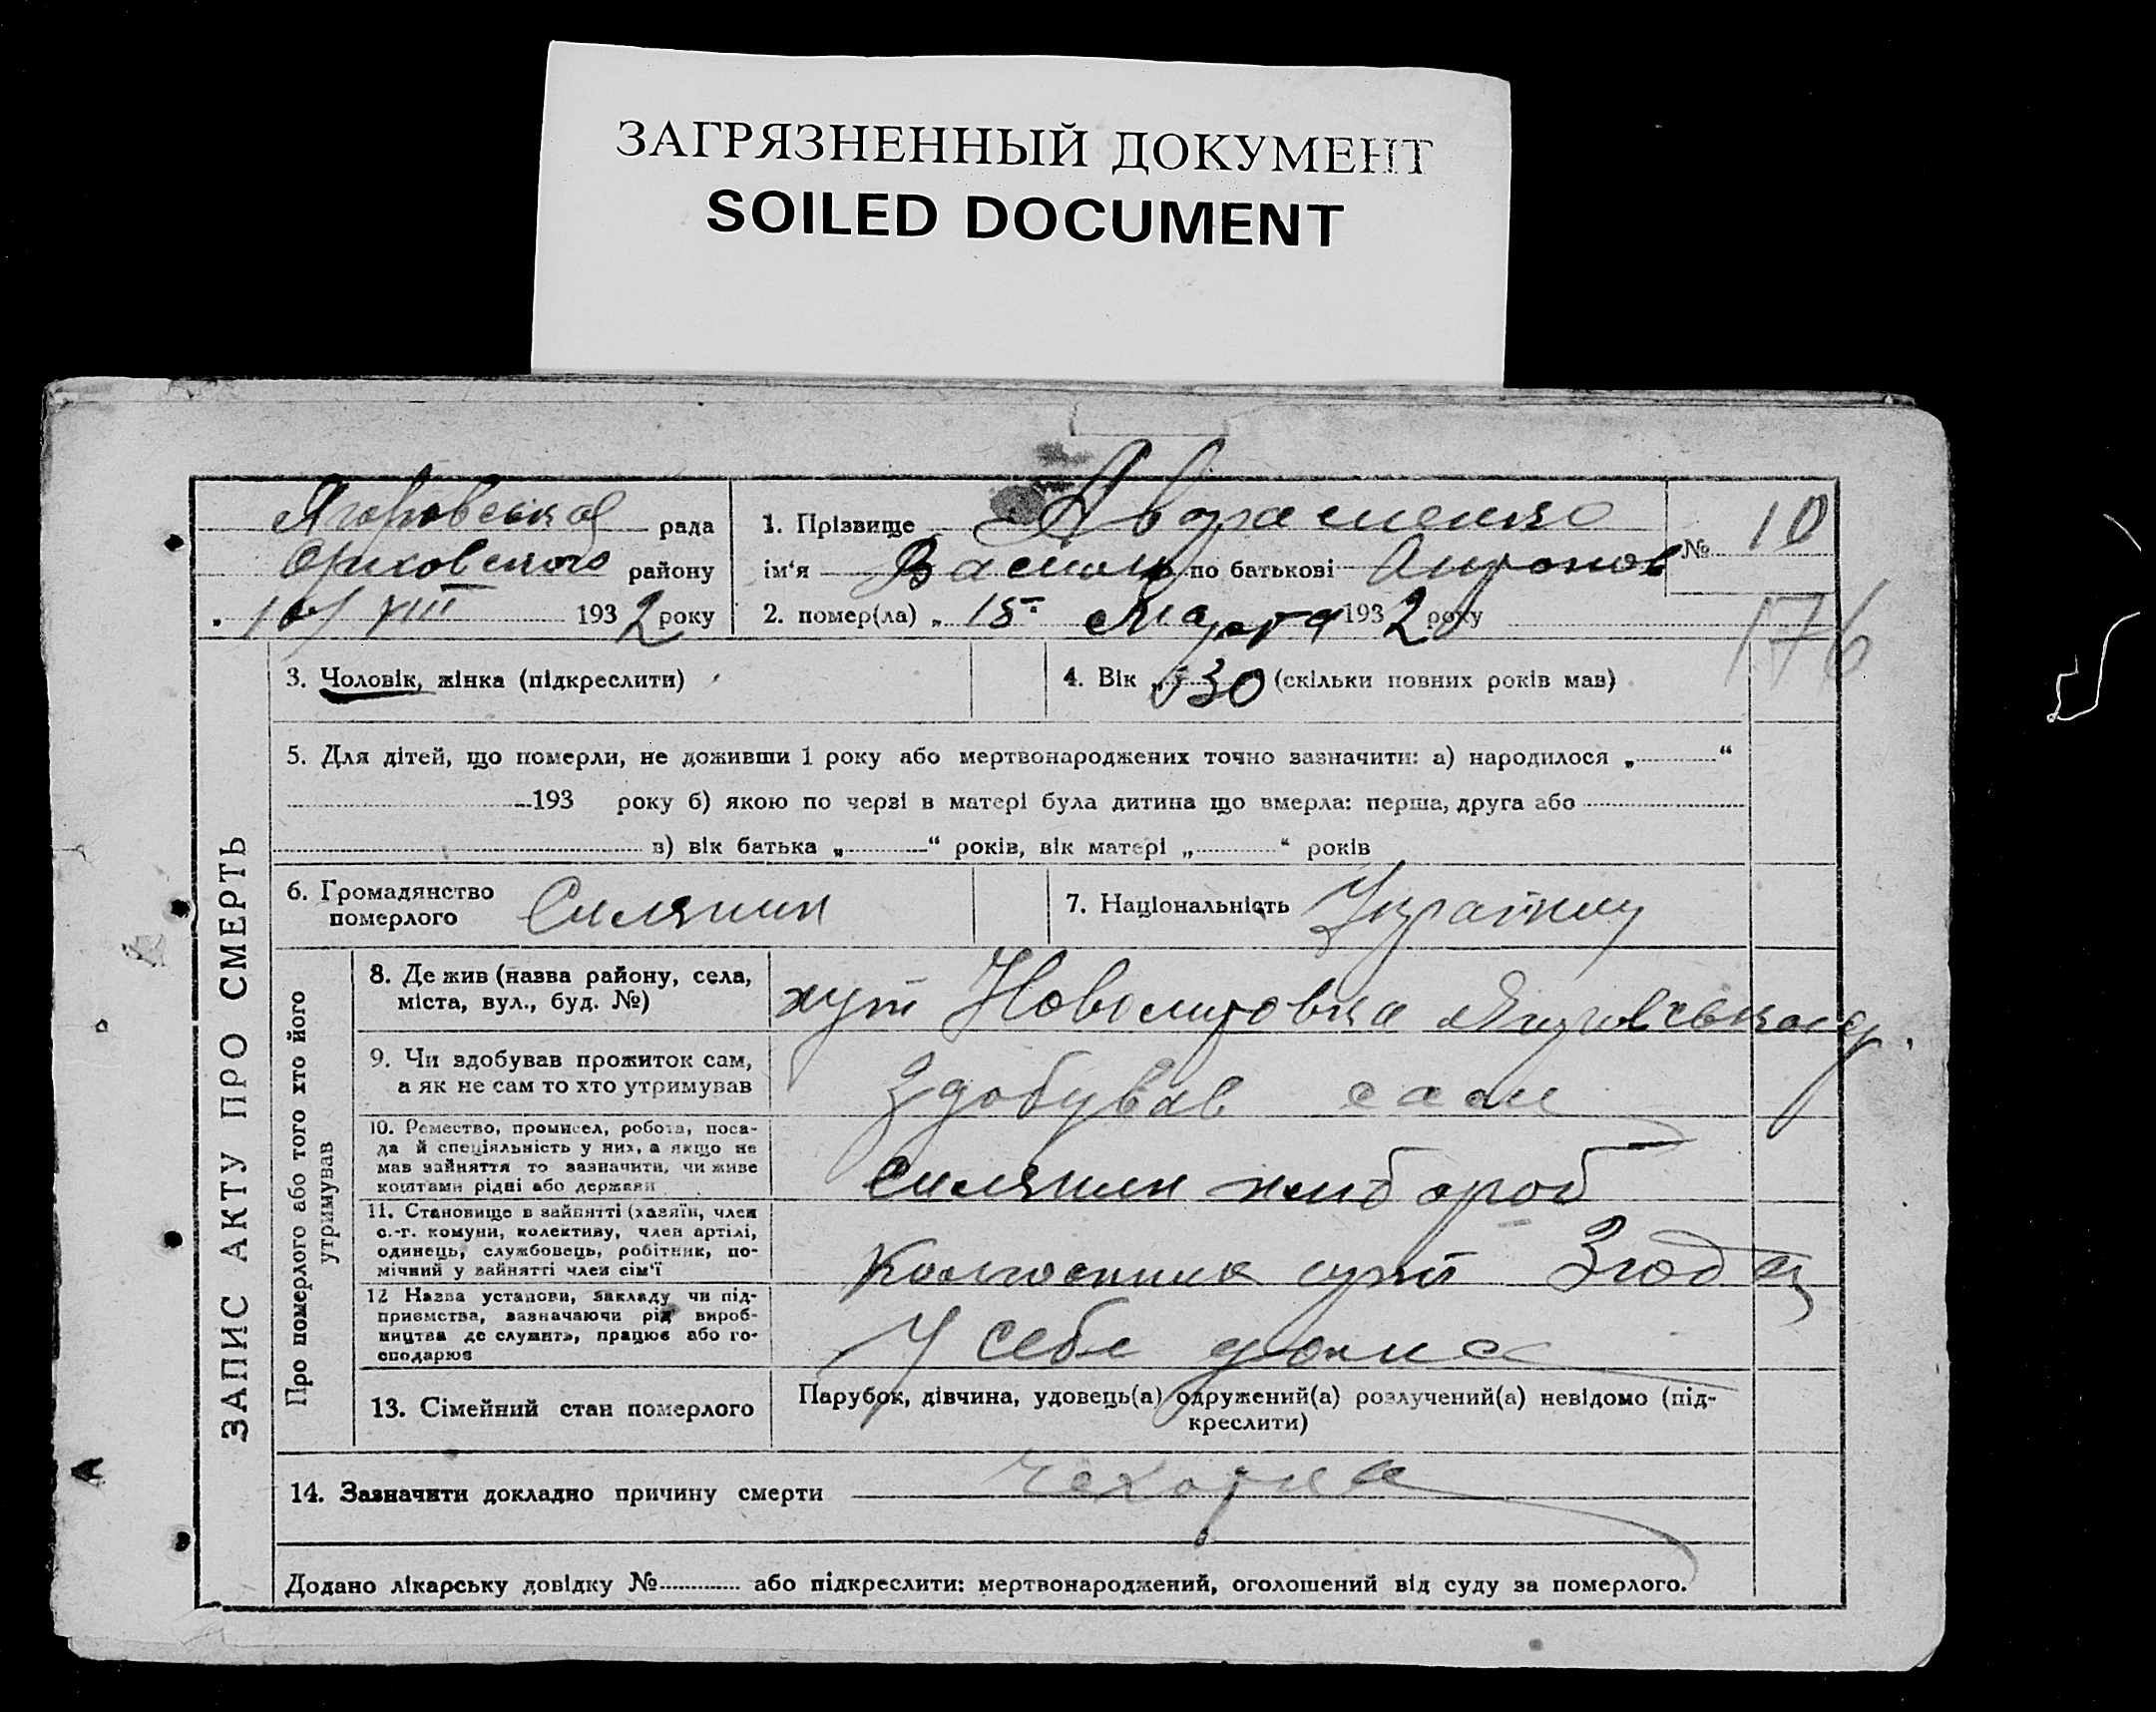 ЗАГРЯЗНЕННЫЙ ДОКУМЕНТ
SOILED DOCUMENT
рада
району
193 2 року
1. Прізвище Авраменко
ім'я Василь по батькові
2. помер(ла) „ 15 Марта 193 2 року
№ 10
176
ЗАПИС АКТУ ПРО СМЕРТЬ
3. Чоловік, жінка (підкреслити)
4. Вік 30 (скільки повних років мав)
5. Для дітей, що померли, не доживши 1 року або мертвонароджених точно зазначити: а) народилося „ “
193 року б) якою по черзі в матері була дитина що вмерла: перша, друга або
в) вік батька „ “ років, вік матері „ “ років
6. Громадянство
померлого Силянин
7. Національність
Про померлого або того хто його
утримував
8. Де жив (назва району, села,
міста, вул., буд. №)
хут
9. Чи здобував прожиток сам,
а як не сам то хто утримував
Здобував сам
10. Ремество, промисел, робота, поса-
да й спеціяльність у них, а якщо не
мав зайняття то зазначити, чи живе
коштами рідні або держави
Силянин хлибороб
11. Становище в зайнятті (хазяїн, член
с.-г. комуни, колективу, член артілі,
одинець, службовець, робітник, по-
мічний у зайнятті член сім'ї
12 Назва установи, закладу чи під-
приємства, зазначаючи рід вироб-
ництва де служить, працює або го-
сподарює
У себе дома
13. Сімейний стан померлого
Парубок, дівчина, удовець(а) одружений(а) розлучений(а) невідомо (під-
креслити)
14. Зазначити докладно причину смерти
Додано лікарську довідку № або підкреслити: мертвонароджений, оголошений від суду за померлого.